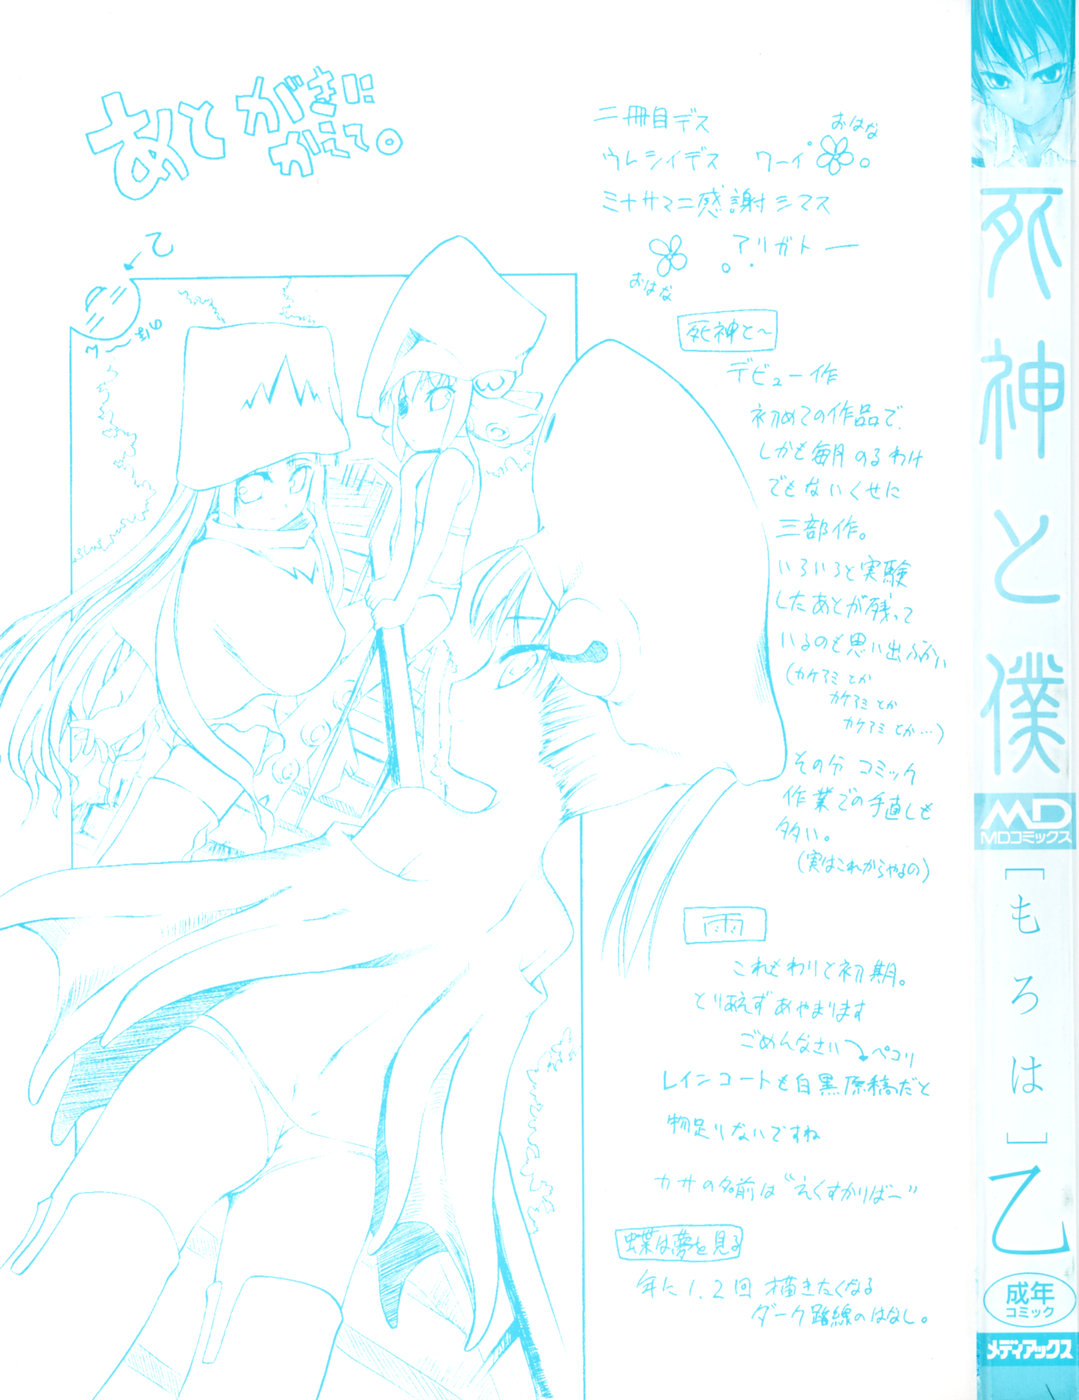 あとがきに
かえて。
乙
二冊目デス
おはな
ウレシイデス ワーイ
ミナサマニ感謝シマス
アリガトー
おはな
死神と〜
デビュー作
初めての作品で、
しかも毎月のるわけ
でもないくせに
三部作。
いろいろと実験
したあとが残って
いるのも思い出ぶかい
(カケアミとか
カケアミとか
カケアミとか…)
その分コミック
作業での手直しも
多い。
(実はこれからやるの)
雨
これもわりと初期。
とりあえずあやまります
ごめんなさい ペコリ
レインコートも白黒原稿だと
物足りないですね
カサの名前は“えくすかりばー”
蝶は夢を見る
年に1、2回描きたくなる
ダーク路線のはなし。
死神と僕
MD
MDコミックス
[もろは]乙
成年
コミック
メディアックス